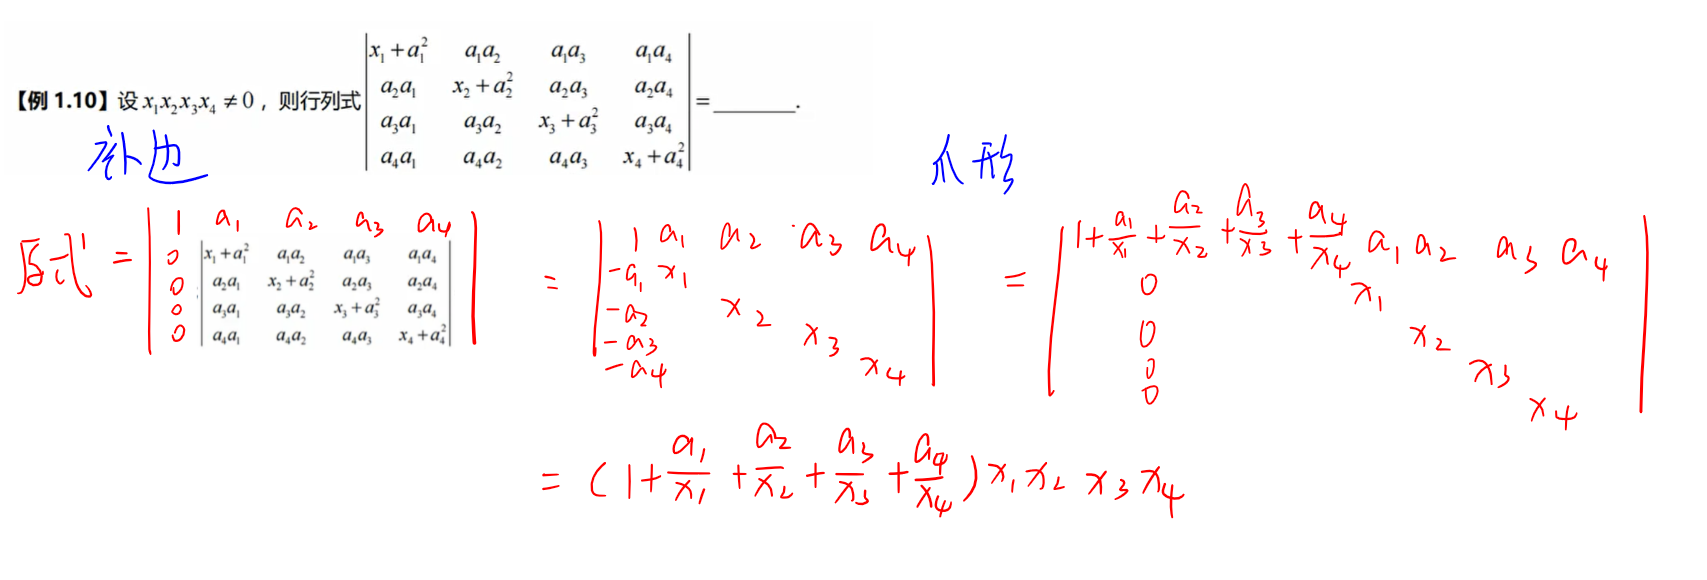 【例 1.10】设 x₁x₂x₃x₄ ≠ 0，则行列式
| x₁+a₁² a₁a₂ a₁a₃ a₁a₄ |
| a₂a₁ x₂+a₂² a₂a₃ a₂a₄ |
| a₃a₁ a₃a₂ x₃+a₃² a₃a₄ |
| a₄a₁ a₄a₂ a₄a₃ x₄+a₄² |
= ______.
补边
爪形
原式 =
| 1 a₁ a₂ a₃ a₄ |
| 0 x₁+a₁² a₁a₂ a₁a₃ a₁a₄ |
| 0 a₂a₁ x₂+a₂² a₂a₃ a₂a₄ |
| 0 a₃a₁ a₃a₂ x₃+a₃² a₃a₄ |
| 0 a₄a₁ a₄a₂ a₄a₃ x₄+a₄² |
=
| 1 a₁ a₂ a₃ a₄ |
| -a₁ x₁ |
| -a₂ x₂ |
| -a₃ x₃ |
| -a₄ x₄ |
=
| 1+a₁/x₁+a₂/x₂+a₃/x₃+a₄/x₄ a₁ a₂ a₃ a₄ |
| 0 x₁ |
| 0 x₂ |
| 0 x₃ |
| 0 x₄ |
= (1+a₁/x₁+a₂/x₂+a₃/x₃+a₄/x₄) x₁ x₂ x₃ x₄